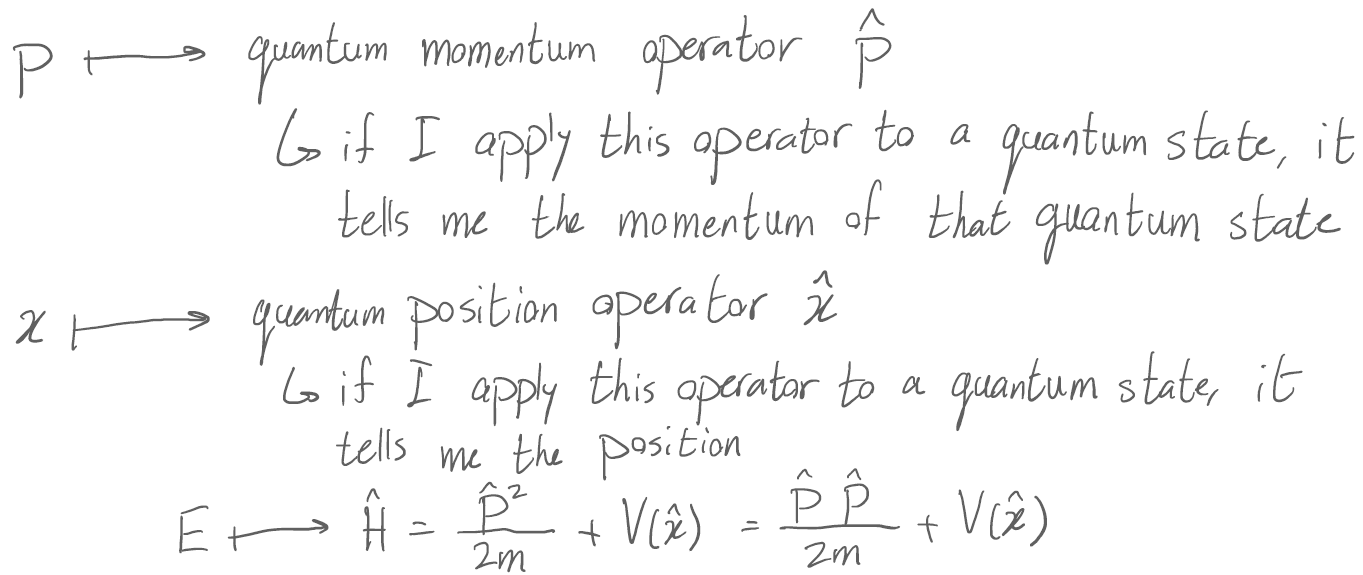 p ⟼ quantum momentum operator p̂
↳ if I apply this operator to a quantum state, it
tells me the momentum of that quantum state
x ⟼ quantum position operator x̂
↳ if I apply this operator to a quantum state, it
tells me the position
E ⟼ Ĥ = p̂²/2m + V(x̂) = p̂ p̂/2m + V(x̂)